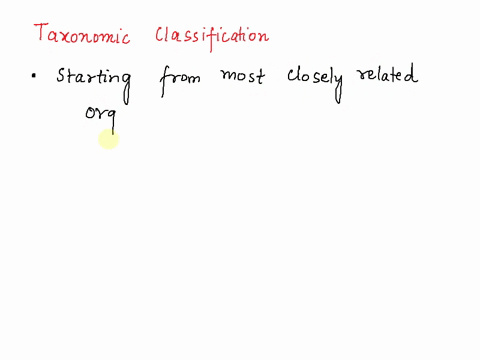 Taxonomic Classification
• Starting from most closely related
org